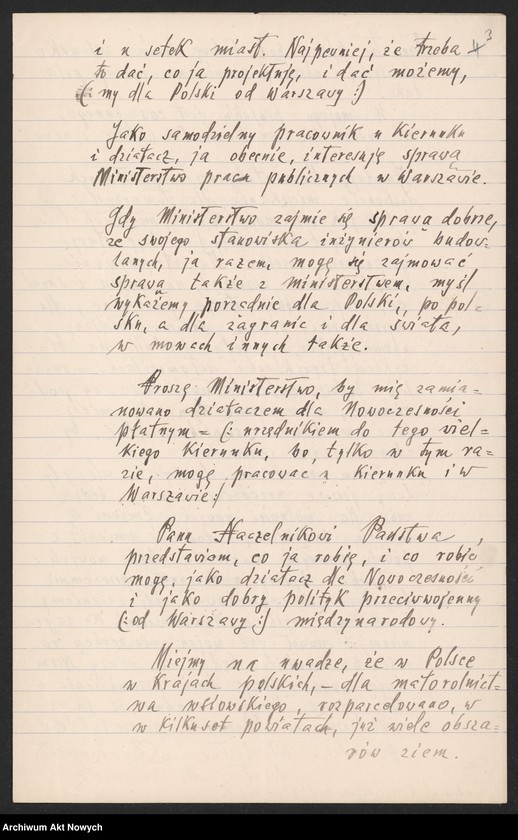 3
i u setek miast. Najpewniej, że trzeba
to dać, co ja projektuję, i dać możemy,
(: my dla Polski od Warszawy :)
Jako samodzielny pracownik u Kierunku
i działacz, ja obecnie, interesuję sprawą
Ministerstwo prac publicznych w Warszawie.
Gdy Ministerstwo zajmie się sprawą dobrze,
ze swojego stanowiska inżynierów budow-
lanych, ja razem, mogę się zajmować
sprawą także z ministerstwem, myśl
wykażemy porządnie dla Polski, po pol-
sku, a dla zagranic i dla świata,
w mowach innych także.
Proszę Ministerstwo, by mię zamia-
nowano działaczem dla Nowoczesności
płatnym = (: urzędnikiem do tego wiel-
kiego Kierunku, bo, tylko w tym ra-
zie, mogę pracować u Kierunku i w
Warszawie :)
Panu Naczelnikowi Państwa,
przedstawiam, co ja robię, i co robić
mogę, jako działacz dla Nowoczesności
i jako dobry polityk przeciwwojenny
(: od Warszawy :) międzynarodowy.
Miejmy na uwadze, że w Polsce
w Krajach polskich, – dla małorolnict-
wa włowskiego, rozparcelowano, w
w kilkuset powiatach, już wiele obsza-
rów ziem.
Archiwum Akt Nowych